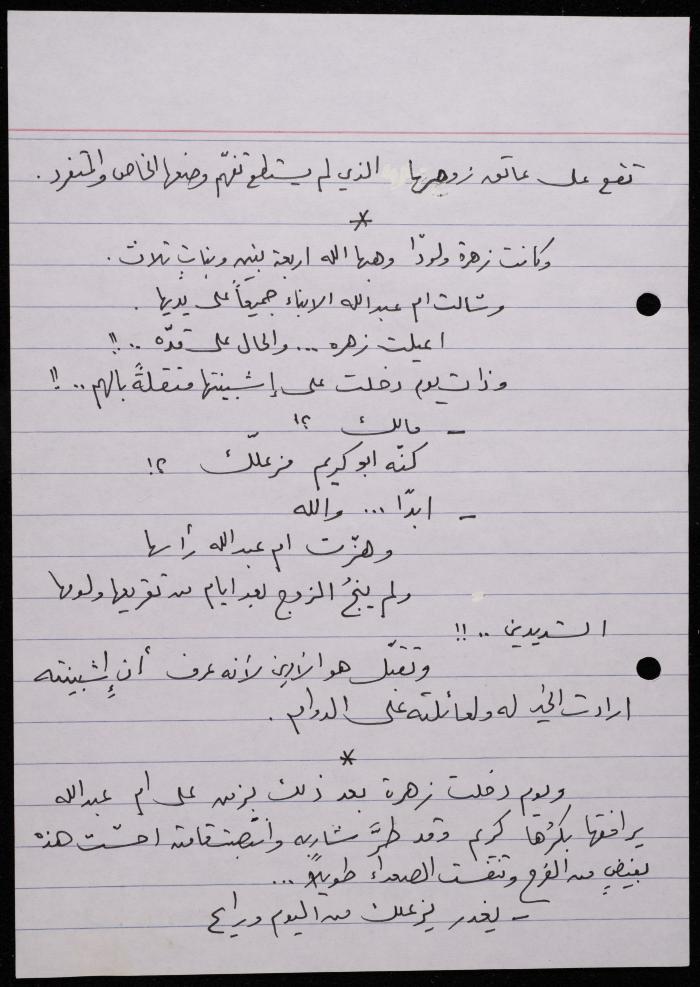 تقع على عاتق زوجها الذي لم يستطع تفهّم وضعها الخاص والمتفرد .
*
وكانت زهرة ولودًا وهبها الله اربعة بنين وبنات ثلاث .
وشالت ام عبدالله الابناء جميعاً على يديها .
اعيلت زهره ... والحال على قدّه ..!!
وذات يوم دخلت على إشبينتها مثقلةً بالهم ..!!
- مالك ؟!
كنّه ابو كريم مزعلّك ؟!
- ابدًا ... والله
وهزّت ام عبدالله رأسها
ولم ينجُ الزوج بعد ايام من تقريعها ولومها
الشديدين ..!!
وتقبّل هو الأمرين لأنه عرف أن إشبينته
ارادت الخير له ولعائلته على الدوام .
*
ويوم دخلت زهرة بعد ذلك بزمن على ام عبدالله
يرافقها بكرُها كريم وقد طرَّ شاربه وانتصبت قامته احسّت هذه
بفيضٍ من الفرح وتنفست الصعداء طويلاً ...
- يقدر يزعلك من اليوم ورايح